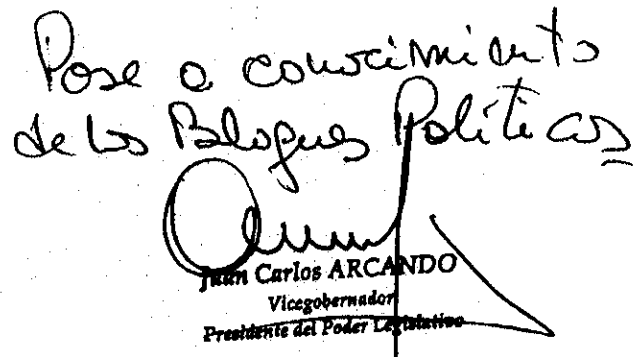 Pase a conocimiento
de los Bloques Políticos
Juan Carlos ARCANDO
Vicegobernador
Presidente del Poder Legislativo